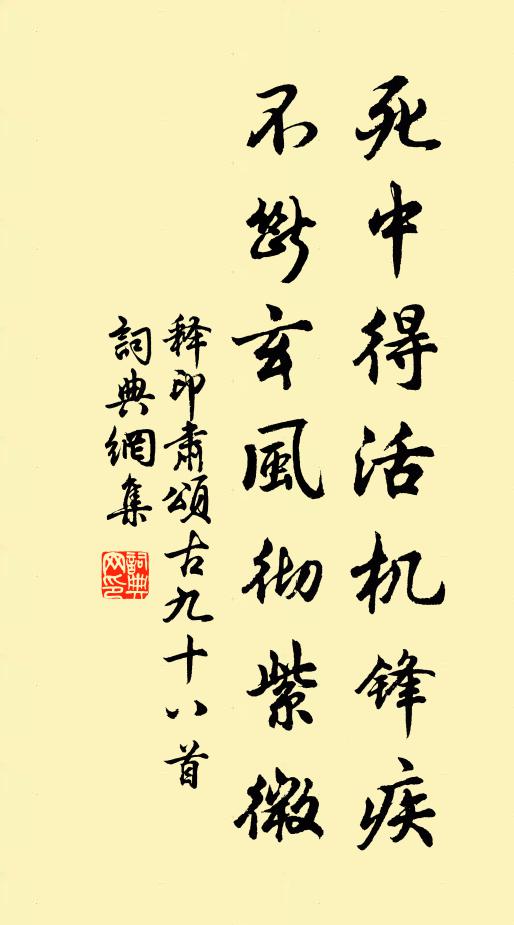 死中得活机锋疾
不断玄風彻紫微
释印肅頌古九十八首
詞典網集
詞典网印